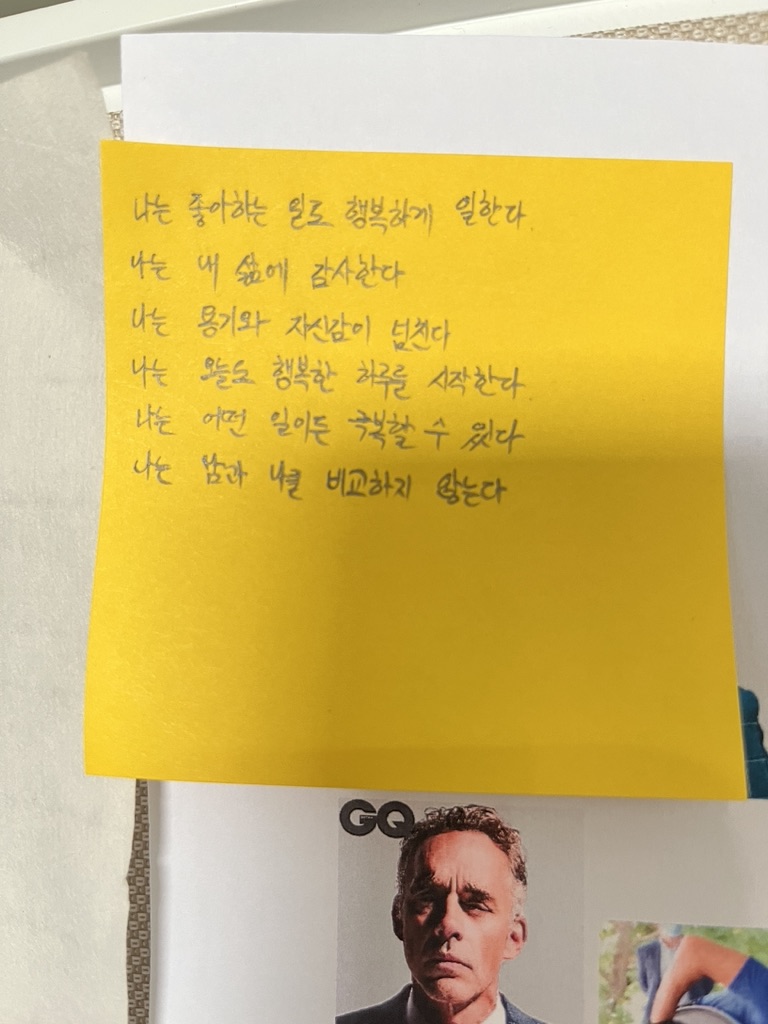 나는 좋아하는 일도 행복하게 일한다.
나는 내 삶에 감사한다
나는 용기와 자신감이 넘친다
나는 오늘도 행복한 하루를 시작한다.
나는 어떤 일이든 극복할 수 있다
나는 남과 나를 비교하지 않는다
GQ